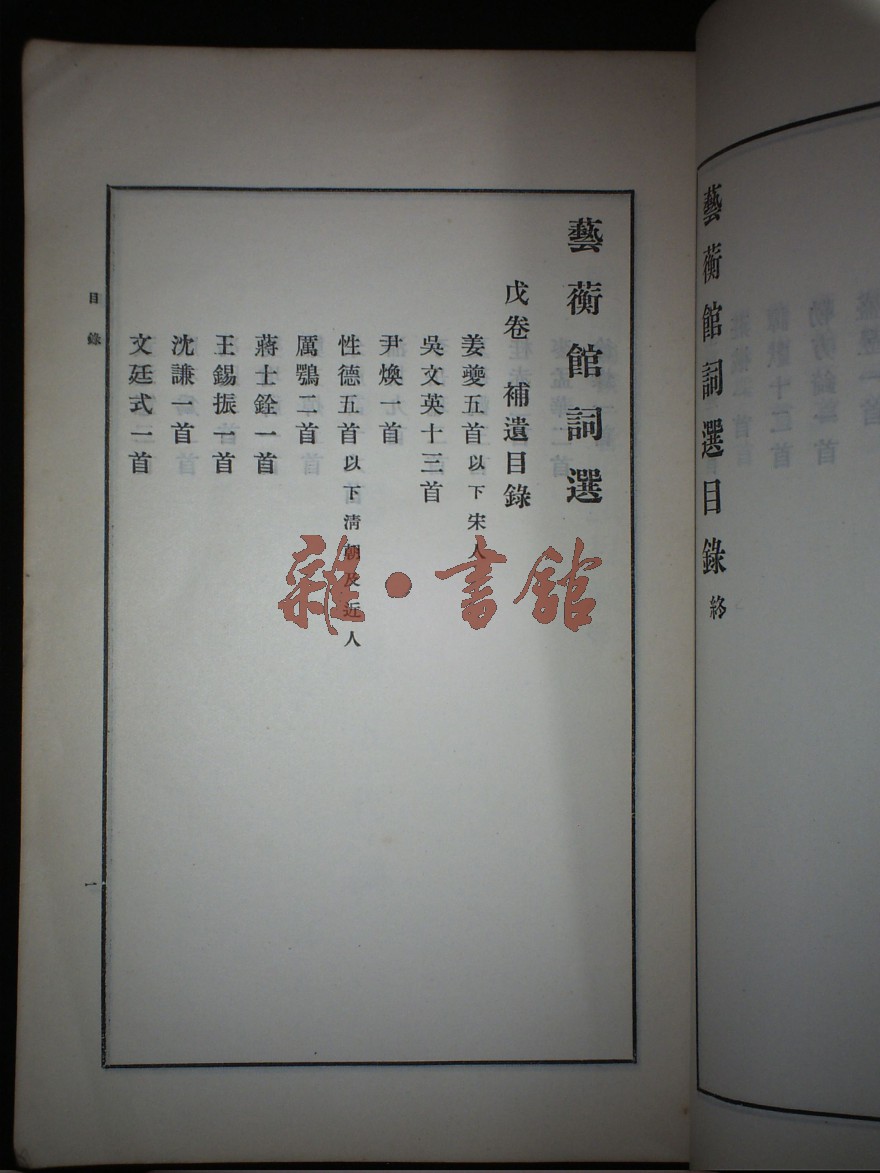 藝蘅館詞選目錄終
藝蘅館詞選
戊卷　補遺目錄
姜夔五首以下宋人
吳文英十三首
尹煥一首
性德五首以下清朝及近人
厲鶚二首
蔣士銓一首
王錫振一首
沈謙一首
文廷式一首
目錄
一
雜·書館